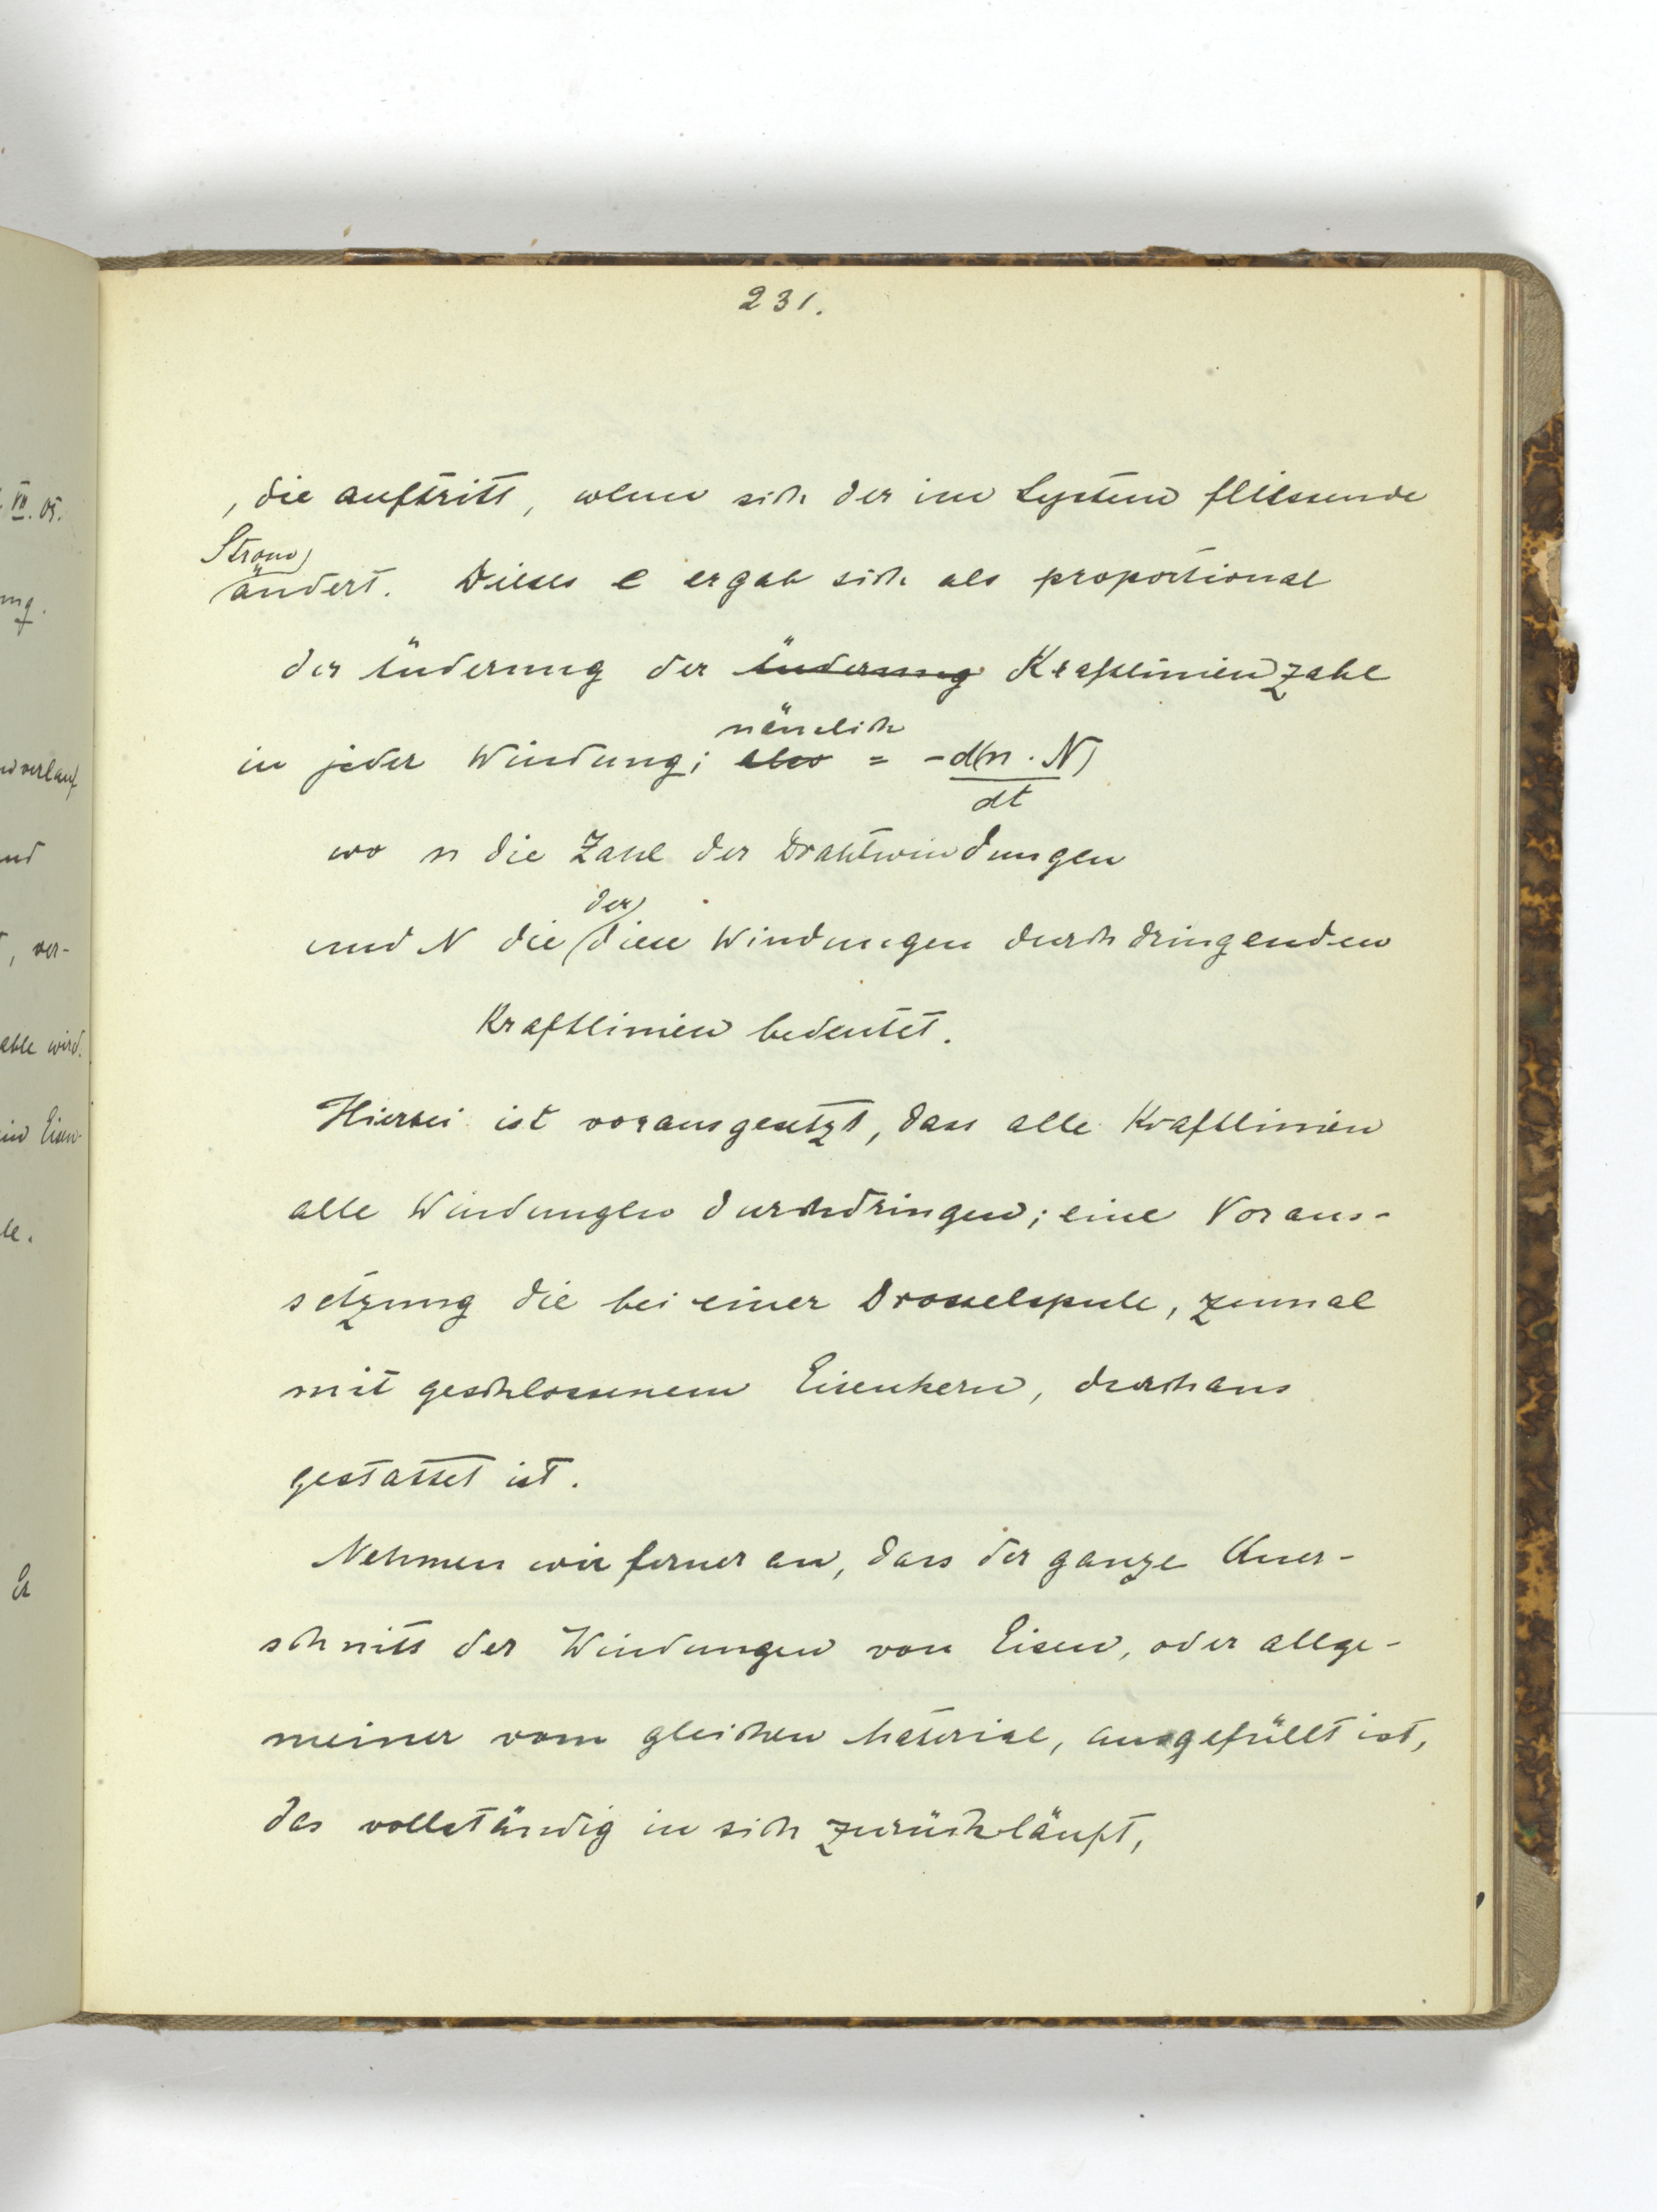 231.
, die auftritt, wenn sich der im System fliessende
Strom
ändert. Dieses e ergab sich als proportional
der Änderung der Änderung Kraftlinienzahl
nämlich
in jeder Windung; also = - d(n · N)
dt
wo n die Zahl der Drahtwindungen
der
und N die diese Windungen durchdringenden
Kraftlinien bedeutet.
Hierbei ist vorausgesetzt, dass alle Kraftlinien
alle Windungen durchdringen; eine Voraus-
setzung die bei einer Drosselspule, zumal
mit geschlossenem Eisenkern, durchaus
gestattet ist.
Nehmen wir ferner an, dass der ganze Quer-
schnitt der Windungen von Eisen, oder allge-
meiner vom gleichen Material, ausgefüllt ist,
das vollständig in sich zurückläuft,
VII. 05.
ng.
verlauf
nd
, ver-
wird.
Eisen-
le.
Es